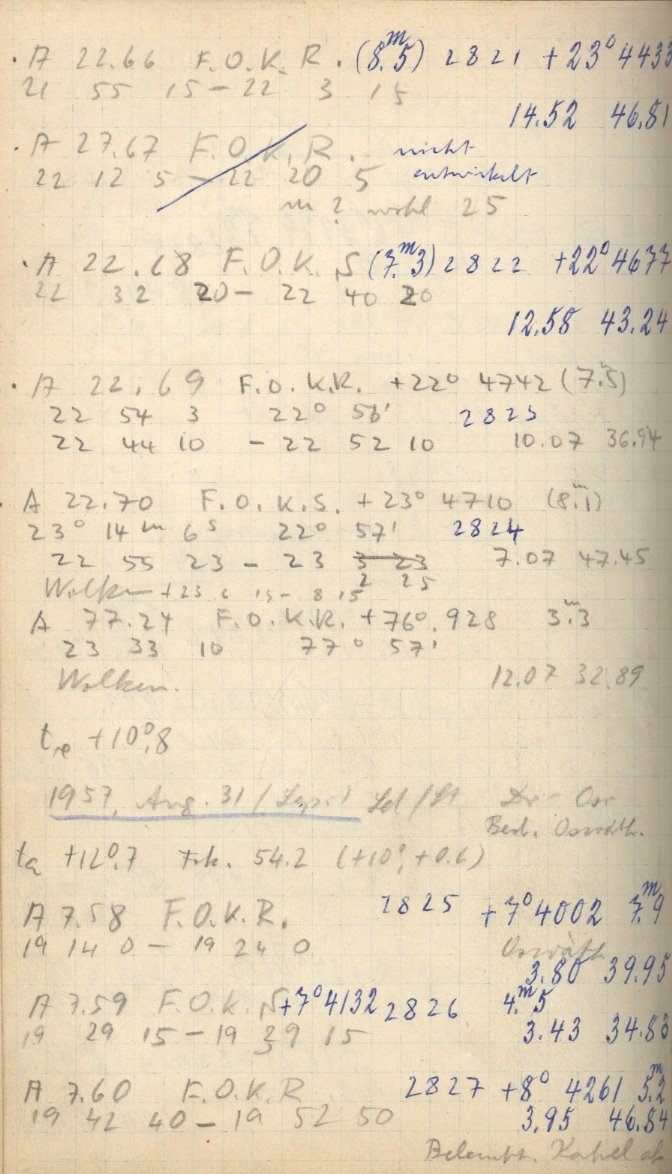 · A 22.66 F.O.K.R. (8.ᵐ5) 2821 +23° 4433
21 55 15 – 22 3 15
14.52 46.81
· A 27.67 F.O.K.R. nicht
22 12 5 – 22 20 5 entwickelt
m? wohl 25
· A 22.68 F.O.K.S (7.ᵐ3) 2822 +22° 4677
22 32 20 – 22 40 20
12.58 43.24
· A 22.69 F.O.K.R. +22° 4742 (7.ᵐ5)
22 54 3 22° 56' 2823
22 44 10 – 22 52 10 10.07 36.94
· A 22.70 F.O.K.S. +23° 4710 (8.ᵐ1)
23° 14 m 6 s 22° 57' 2824
22 55 23 – 23 3 23 7.07 47.45
2 25
Wolken +23 6 15 – 8 15
A 77.24 F.O.K.R. +76°.928 3.ᵐ3
23 33 10 77° 57'
Wolken. 12.07 32.89
+10°,8
1957, Aug. 31 / Sept. 1
ta +12°.7 54.2 (+10°, +0.6)
A 7.58 F.O.K.R. 2825 +7° 4002 7.ᵐ9
19 14 0 – 19 24 0
3.80 39.95
A 7.59 F.O.K.S +7° 4132 2826 4.ᵐ5
19 29 15 – 19 39 15 3.43 34.83
A 7.60 F.O.K.R 2827 +8° 4261 5.2ᵐ
19 42 40 – 19 52 50 3.95 46.84